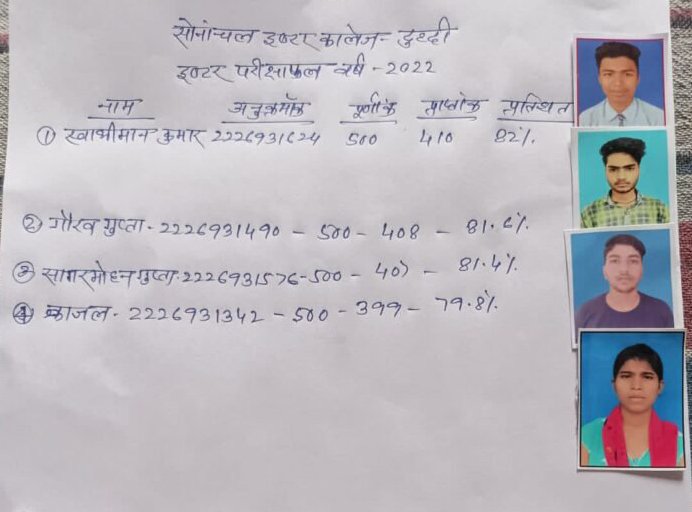 सोनांचल इण्टर कालेज- दुद्धी
इण्टर परीक्षाफल वर्ष - 2022
नाम अनुक्रमाँक पूर्णांक प्राप्तांक प्रतिशत
① स्वाभीमान कुमार 2226931624 500 410 82%.
② गौरव गुप्ता - 2226931490 - 500 - 408 - 81.6%.
③ सागरमोहन गुप्ता - 2226931576 - 500 - 407 - 81.4%.
④ काजल - 2226931342 - 500 - 399 - 79.8%.